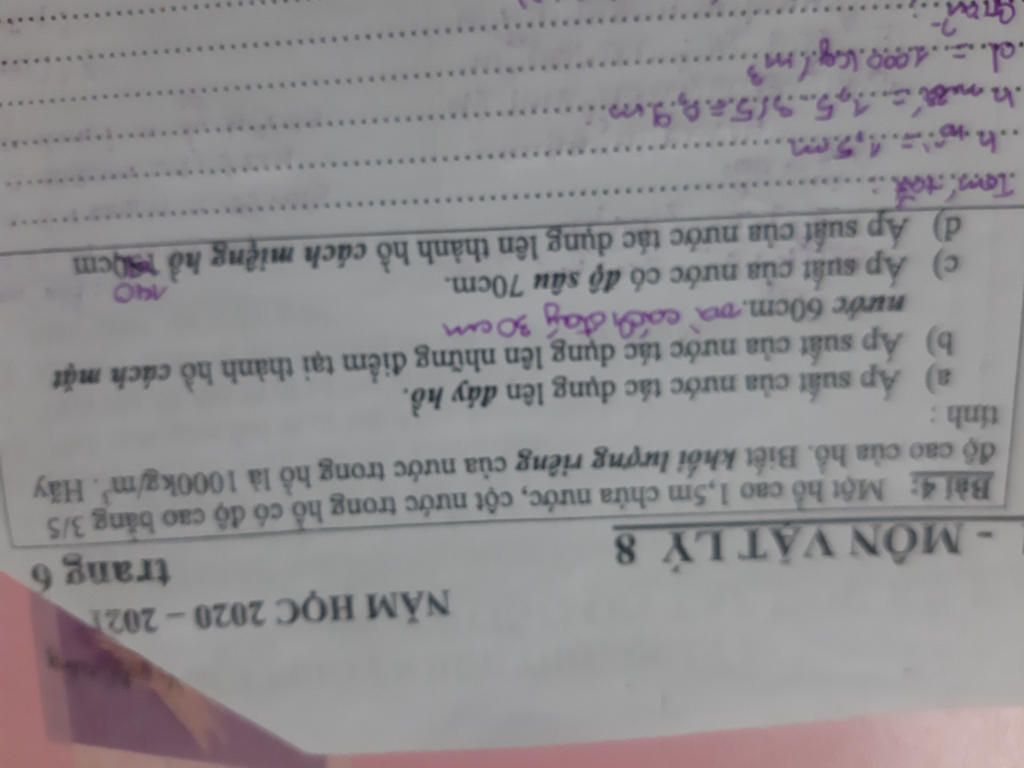 NĂM HỌC 2020 – 2021
- MÔN VẬT LÝ 8 trang 6
Bài 4: Một hồ cao 1,5m chứa nước, cột nước trong hồ có độ cao bằng 3/5
độ cao của hồ. Biết khối lượng riêng của nước trong hồ là 1000kg/m³. Hãy
tính :
a) Áp suất của nước tác dụng lên đáy hồ.
b) Áp suất của nước tác dụng lên những điểm tại thành hồ cách mặt
nước 60cm. và cách đáy 30 cm
c) Áp suất của nước có độ sâu 70cm.
140
d) Áp suất của nước tác dụng lên thành hồ cách miệng hồ cm
Tóm tắt :
h hồ = 1,5 m
h nước = 1,5 . 3/5 = 0,9 m
d = 1000 kg/m³